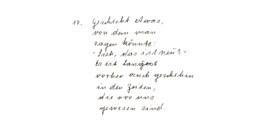 17. Geschieht etwas,
von dem man
sagen könnte:
„Sieh, das ist neu!" –
Es ist längst
vorher auch geschehen
in den Zeiten,
die vor uns
gewesen sind.